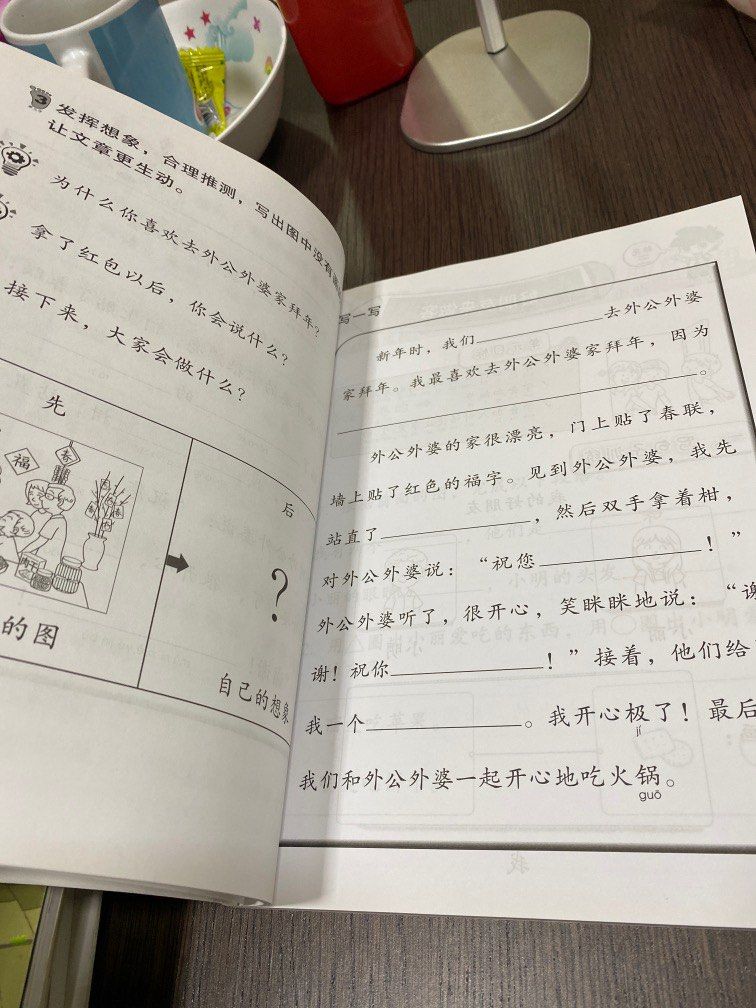 3 发挥想象，合理推测，写出图中没有
让文章更生动。
为什么你喜欢去外公外婆家拜年？
拿了红包以后，你会说什么？
接下来，大家会做什么？
先
福
春
的图
后
？
自己的想象
写一写
新年时，我们____________去外公外婆
家拜年。我最喜欢去外公外婆家拜年，因为
____________。
外公外婆的家很漂亮，门上贴了春联，
墙上贴了红色的福字。见到外公外婆，我先
站直了____________，然后双手拿着柑，
对外公外婆说：“祝您____________！”
外公外婆听了，很开心，笑眯眯地说：“谢
谢！祝你____________！”接着，他们给
我一个____________。我开心极了！最后
jí
我们和外公外婆一起开心地吃火锅。
guō